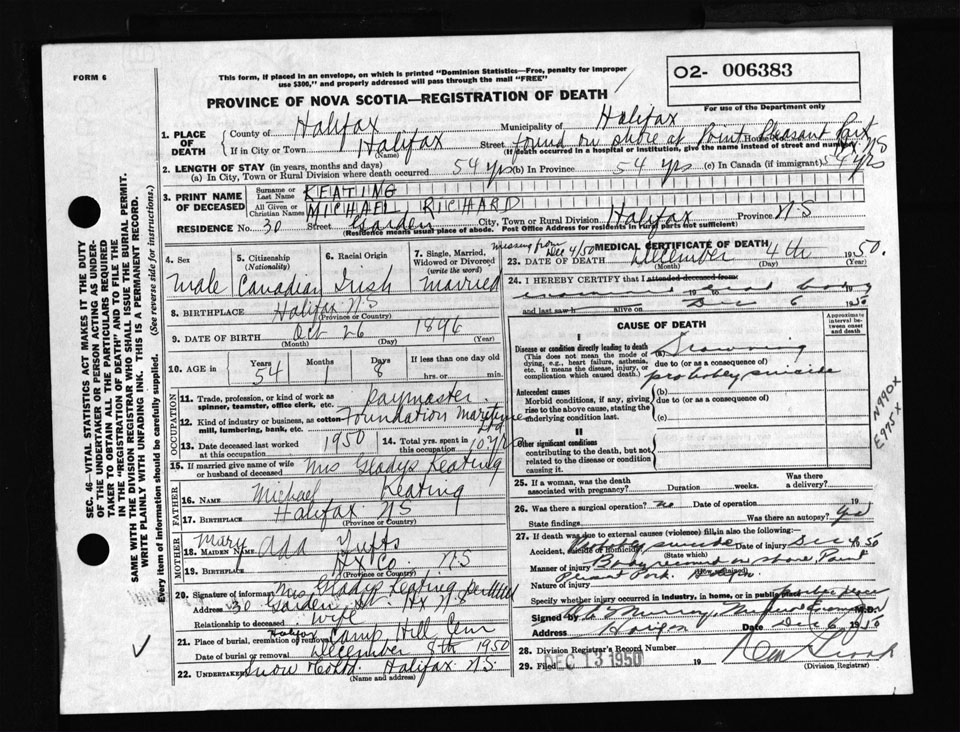 FORM 6
This form, if placed in an envelope, on which is printed "Dominion Statistics—Free, penalty for improper
use $300," and properly addressed will pass through the mail "FREE"
O2- 006383
For use of the Department only
PROVINCE OF NOVA SCOTIA—REGISTRATION OF DEATH
1. PLACE OF DEATH
County of Halifax Municipality of Halifax
If in City or Town Halifax (Name) Street found on shore at Point Pleasant Park House No. NS
(If death occurred in a hospital or institution, give the name instead of street and number)
2. LENGTH OF STAY (in years, months and days)
(a) In City, Town or Rural Division where death occurred 54 yrs (b) In Province 54 yrs (c) In Canada (if immigrant) 54 yrs
3. PRINT NAME OF DECEASED
Surname or Last Name KEATING
All Given or Christian Names MICHAEL RICHARD
RESIDENCE No. 30 Street Garden City, Town or Rural Division Halifax Province NS
(Residence means usual place of abode. Post Office Address for residents in rural parts not sufficient)
4. Sex
Male
5. Citizenship (Nationality)
Canadian
6. Racial Origin
Irish
7. Single, Married, Widowed or Divorced (write the word)
Married
8. BIRTHPLACE Halifax NS
(Province or Country)
9. DATE OF BIRTH Oct 26 1896
(Month) (Day) (Year)
10. AGE in Years 54 Months 1 Days 8 If less than one day old
hrs. or min.
OCCUPATION
11. Trade, profession, or kind of work as spinner, teamster, office clerk, etc. Paymaster
12. Kind of industry or business, as cotton mill, lumbering, bank, etc. Foundation Maritime Ltd
13. Date deceased last worked at this occupation 1950
14. Total yrs. spent in this occupation 10 yrs
15. If married give name of wife or husband of deceased Mrs Gladys Keating
FATHER
16. NAME Michael Keating
17. BIRTHPLACE Halifax NS
(Province or Country)
MOTHER
18. MAIDEN NAME Mary Ada Tufts
19. BIRTHPLACE Hx Co. NS
(Province or Country)
20. Signature of informant Mrs Gladys Keating
Address 30 Garden St. Hx NS
Relationship to deceased wife
21. Place of burial, cremation or removal Halifax Camp Hill Cem
Date of burial or removal December 8th 1950
22. UNDERTAKER Snow Halifax NS
(Name and address)
MEDICAL CERTIFICATE OF DEATH
Missing from Dec 4/50
23. DATE OF DEATH December 4th 1950.
(Month) (Day) (Year)
24. I HEREBY CERTIFY that I attended deceased from
examined dead body
19 to 19
and last saw h alive on Dec 6 1950
CAUSE OF DEATH
Approximate interval between onset and death
I
Disease or condition directly leading to death
(This does not mean the mode of dying, e.g., heart failure, asthenia, etc. It means the disease, injury, or complication which caused death.)
(a) Drowning
due to (or as a consequence of)
probably suicide
Antecedent causes
Morbid conditions, if any, giving rise to the above cause, stating the underlying condition last.
(b)
due to (or as a consequence of)
(c)
II
Other significant conditions
contributing to the death, but not related to the disease or condition causing it.
N990X
E975X
25. If a woman, was the death associated with pregnancy? Duration weeks. Was there a delivery?
26. Was there a surgical operation? no Date of operation 19
State findings Was there an autopsy? Yes
27. If death was due to external causes (violence) fill in also the following:
Accident, suicide or homicide? Probably suicide Date of injury Dec 4 1950
(State which)
Manner of injury Body recovered on shore Point
Pleasant Park. Halifax
Nature of injury
Specify whether injury occurred in industry, in home, or in public place
Signed by Murray, Medical Examiner M.D.
Address Halifax Date Dec 6 1950
28. Division Registrar's Record Number
29. Filed DEC 13 1950 19
(Division Registrar)
SEC. 46—VITAL STATISTICS ACT MAKES IT THE DUTY
OF THE UNDERTAKER OR PERSON ACTING AS UNDERTAKER
TO OBTAIN ALL THE PARTICULARS REQUIRED
IN THE "REGISTRATION OF DEATH" AND TO FILE THE
SAME WITH THE DIVISION REGISTRAR WHO SHALL ISSUE THE BURIAL PERMIT.
WRITE PLAINLY WITH UNFADING INK. THIS IS A PERMANENT RECORD.
Every item of information should be carefully supplied. (See reverse side for instructions.)